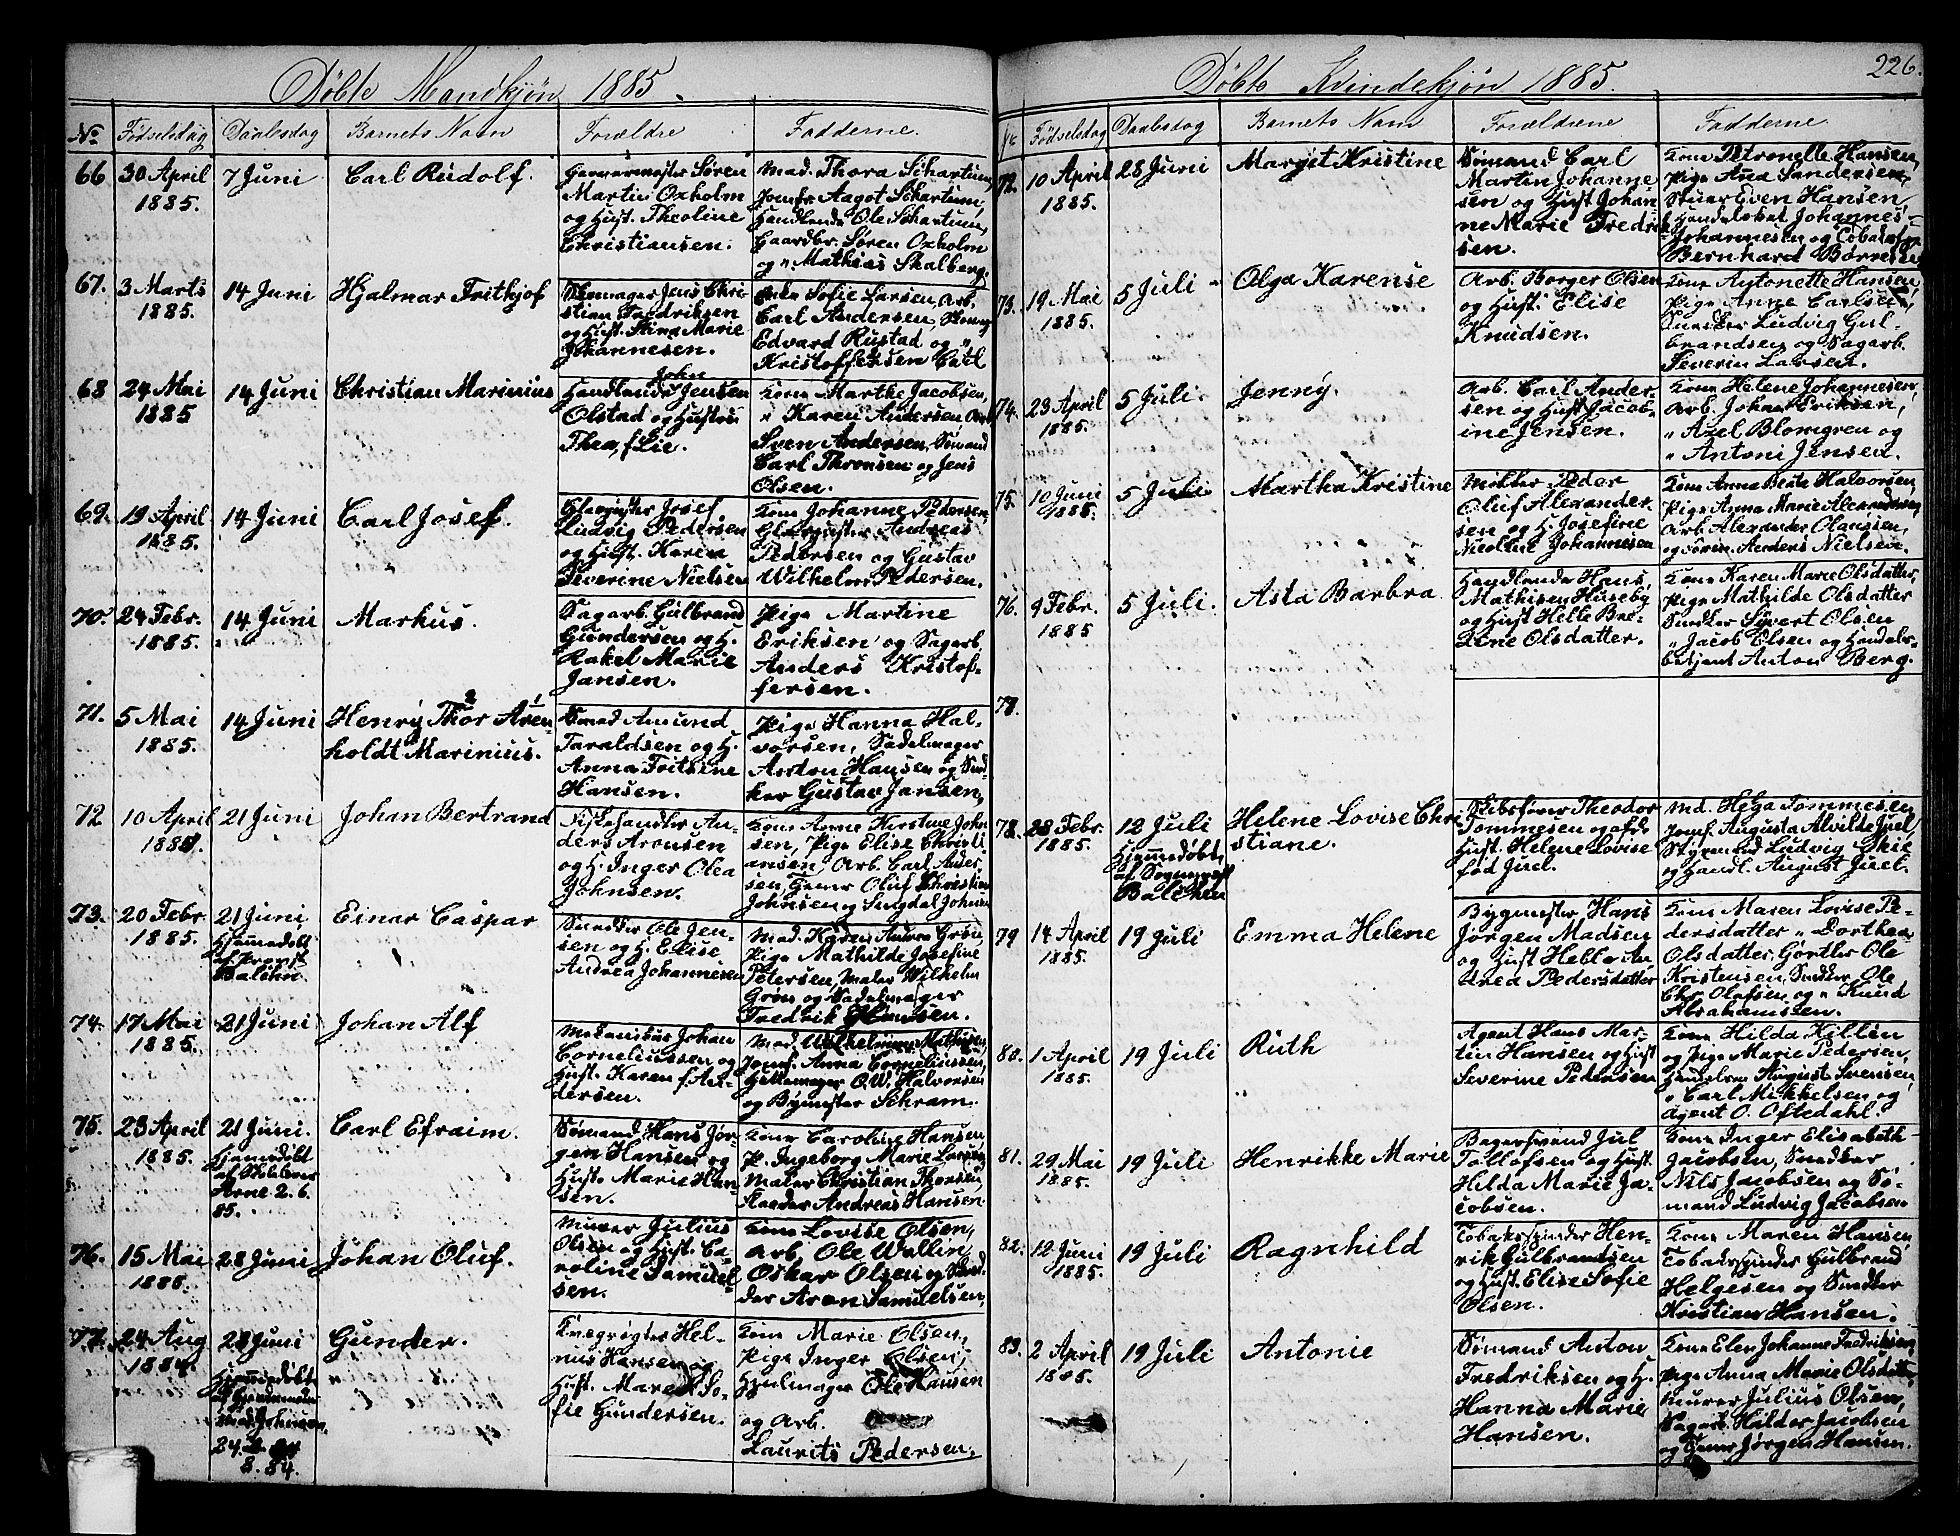 Döbte Mandkjøn 1885.
No Fødselsdag Daabsdag Barnets Navn Forældre Fadderne.
66 30 April 1885. 7 Juni Carl Rudolf.
Garvermester Søren
Martin Oxholm
og Hust. Theoline
Christiansen.
Mad. Thora Schartum,
Jomfr Aagot Schartum,
Handlende Ole Schartum,
Gaardbr. Søren Oxholm
og " Mathias Skalberg.
67. 3 Marts 1885. 14 Juni Hjalmar Frithjof
Jens Chri
stian Fredriksen
og Hust. Stina Marie
Johannesen.
Enke Sofie Larsen, Arb.
Carl Andersen,
Edvard Rustad og "
Kristoffersen Carl
68 24 Mai 1885 14 Juni Christian Marinius
John
Handlende Jensen
Olstad og Hustru
Thea, f Lie.
Kone Marthe Jacobsen,
" Karen Andersen, Arb.
Sven Andersen, Sømand
Carl Thronsen og Jens
Olsen.
69. 19 April 1885. 14 Juni Carl Josef.
Glasmester Josef
Ludvig Pedersen
og Hust. Karen
Severine Nielsen
Kone Johanne Pedersen,
Glasmester Andreas
Pedersen og Gustav
Wilhelm Pedersen.
70. 24 Febr. 1885. 14 Juni Markus.
Sagarb. Gulbrand
Gundersen og H.
Rakel Marie
Jansen.
Pige Martine
Eriksen og Sagarb.
Anders Kristof-
fersen.
71. 5 Mai 1885. 14 Juni Henry Thor Aren
holdt Marinius.
Smed Amund
Taraldsen og H.
Anna Fritsine
Hansen.
Pige Hanna Hal-
vorsen, Sadelmager
Anton Hansen og Sned
ker Gustav Jansen,
72 10 April 1885 21 Juni Johan Bertrand
Fiskehandler An-
ders Aronsen
og H. Inger Olea
Johnsen.
Kone Anne Kirstine John
sen, Pige Elise Christi
ansen, Arb. Carl Ander
sen, Tømr Oluf Christian
Johnsen og Singdal Johnsen
73. 20 Febr 1885. 21 Juni
Hjemmedøbt
af Provst
Balchen.
Einar Caspar
Snedker Ole Jen-
sen og H. Elise
Andrea Johannesen
Mad. Karen Andrea Grøn,
Pige Mathilde Josefine
Petersen, Maler Wilhelm
Grøn og Sadelmager
Fredrik Hansen.
74. 17 Mai 1885. 21 Juni Johan Alf
Mekanikus Johan
Corneliussen og
Hust. Karen f An-
dersen.
Mad. Wilhelmine Mathisen,
Jomf. Anna Corneliussen,
O.W. Halvorsen
og Bygmester Schram.
75. 23 April 1885. 21 Juni.
Hjemmedøbt
af Skolelærer
Arne 2.6.
85.
Carl Efraim.
Sømand Hans Jør-
gen Hansen og
Hust. Marie Han
sen.
Kone Caroline Hansen,
P. Ingeborg Marie Larsen,
Maler Christian Thorsen,
Andreas Hansen.
76. 15 Mai 1885. 28 Juni Johan Oluf.
Murer Julius
Olsen og Hust. Ca-
roline Samuel
sen.
Kone Lovise Olsen,
Arb. Ole Wallin,
Oskar Olsen og
Aron Samuelsen,
77. 24 Aug 1884. 28 Juni
Hjemmedøbt
af Gjordemoder
Mad. Johnsen
24. 8 84
8. 84.
Gunder.
Hel-
nius Hansen og
Hust. Maren So-
fie Gundersen.
Kone Marie Olsen,
Pige Inger Olsen,
Hjulmager Ole Hansen
og Arb.
Laurits Pedersen.
Döbte Kvindekjøn 1885.
226.
No Fødselsdag Daabsdag Barnets Navn Forældrene Fadderne.
72. 10 April 1885. 28 Juni Margit Kristine
Sømand Carl
Martin Johanne
sen og Hust Johan
ne Marie Fredrik
sen.
Kone Petronelle Hansen,
Pige Ana Sandersen,
Stuer Even Hansen,
Handelsbet. Johannes
Johannesen og
Bernhard Børresen
73. 19 Mai 1885. 5 Juli Olga Karense
Arb. Borger Olsen
og Hust. Elise
Knudsen.
Kone Antonette Hansen,
Pige Anne Carlsen,
Snedker Ludvig Gul-
brandsen og Sagarb.
Severin Larsen.
74. 23 April 1885. 5 Juli. Jenny.
Arb. Carl Ander-
sen og Hust Jacob-
ine Jensen.
Kone Helene Johannesen
Arb. Johan Eriksen,
" Axel Blomgren og
" Antoni Jensen.
75. 10 Juni 1885. 5 Juli Martha Kristine
Møller Peder
Oluf Alexander
sen og H. Josefine
Nicoline Johannesen
Kone Anna Beate Halvorsen,
Pige Anna Marie Alexandersen,
Arb. Alexander Olaussen,
og Anders Nielsen.
76. 9 Febr. 1885 5 Juli. Asta Barbra
Handlende Hans
Mathisen Huseby
og Hust Helle Bre-
dine Olsdatter.
Kone Karen Marie Olsdatter,
Pige Mathilde Olsdatter
Snedker Sivert Olsen
" Jacob Olsen og Handels-
betjent Anton Berg.
77.
78. 28 Febr. 1885. 12 Juli
Hjemmedøbt
af Sognepræst
Balchen
Helene Lovise Chri
stiane.
Skibsfører Theodor
Tommesen og
Hust. Helene Lovise
fød Juel.
Md. Helga Tommesen,
Jomf. Augusta Alvilde Juel,
Styrmand Ludvig Skie
og Handl. August Juel.
79 14 April 1885. 19 Juli Emma Helene
Bygmester Hans
Jørgen Madsen
og Hust Helle An
drea Pedersdatter
Kone Maren Lovise Pe-
dersdatter " Dorthea
Olsdatter, Gørtler Ole
Kristensen, Snedker Ole
Chr. Olafsen og " Knud
Abrahamsen.
80. 1 April 1885. 19 Juli Ruth
Agent Hans Mar-
tin Hansen og Hust
Severine Pedersen
Kone Hilda Hillen
og Pige Marie Pedersen,
August Svensen,
" Carl Mikkelsen og
Agent O. Oftedahl.
81. 29 Mai 1885. 19 Juli Henrikke Marie
Bagersvend Jul
Tollofsen og Hust.
Hilda Marie Ja-
cobsen.
Kone Inger Elisabeth
Jacobsen, Snedker
Nils Jacobsen og Sø-
mand Ludvig Jacobsen
82. 12 Juni 1885. 19 Juli Ragnhild
Tobaksspinder Hen-
rik Gulbrandsen
og Hust. Elise Sofie
Olsen.
Kone Maren Hansen,
Tobaksspinder Gulbrand
Helgesen og Snedker
Kristian Hansen.
83. 2 April 1885. 19 Juli Antonie
Sømand Anton
Fredriksen og H.
Hanna Marie
Hansen.
Kone Elen Johanne Fredriksen,
Pige Anna Marie Olsdatter,
Murer Julius Olsen,
Sagarb Hildor Jacobsen
og Tømr Jørgen Hansen.